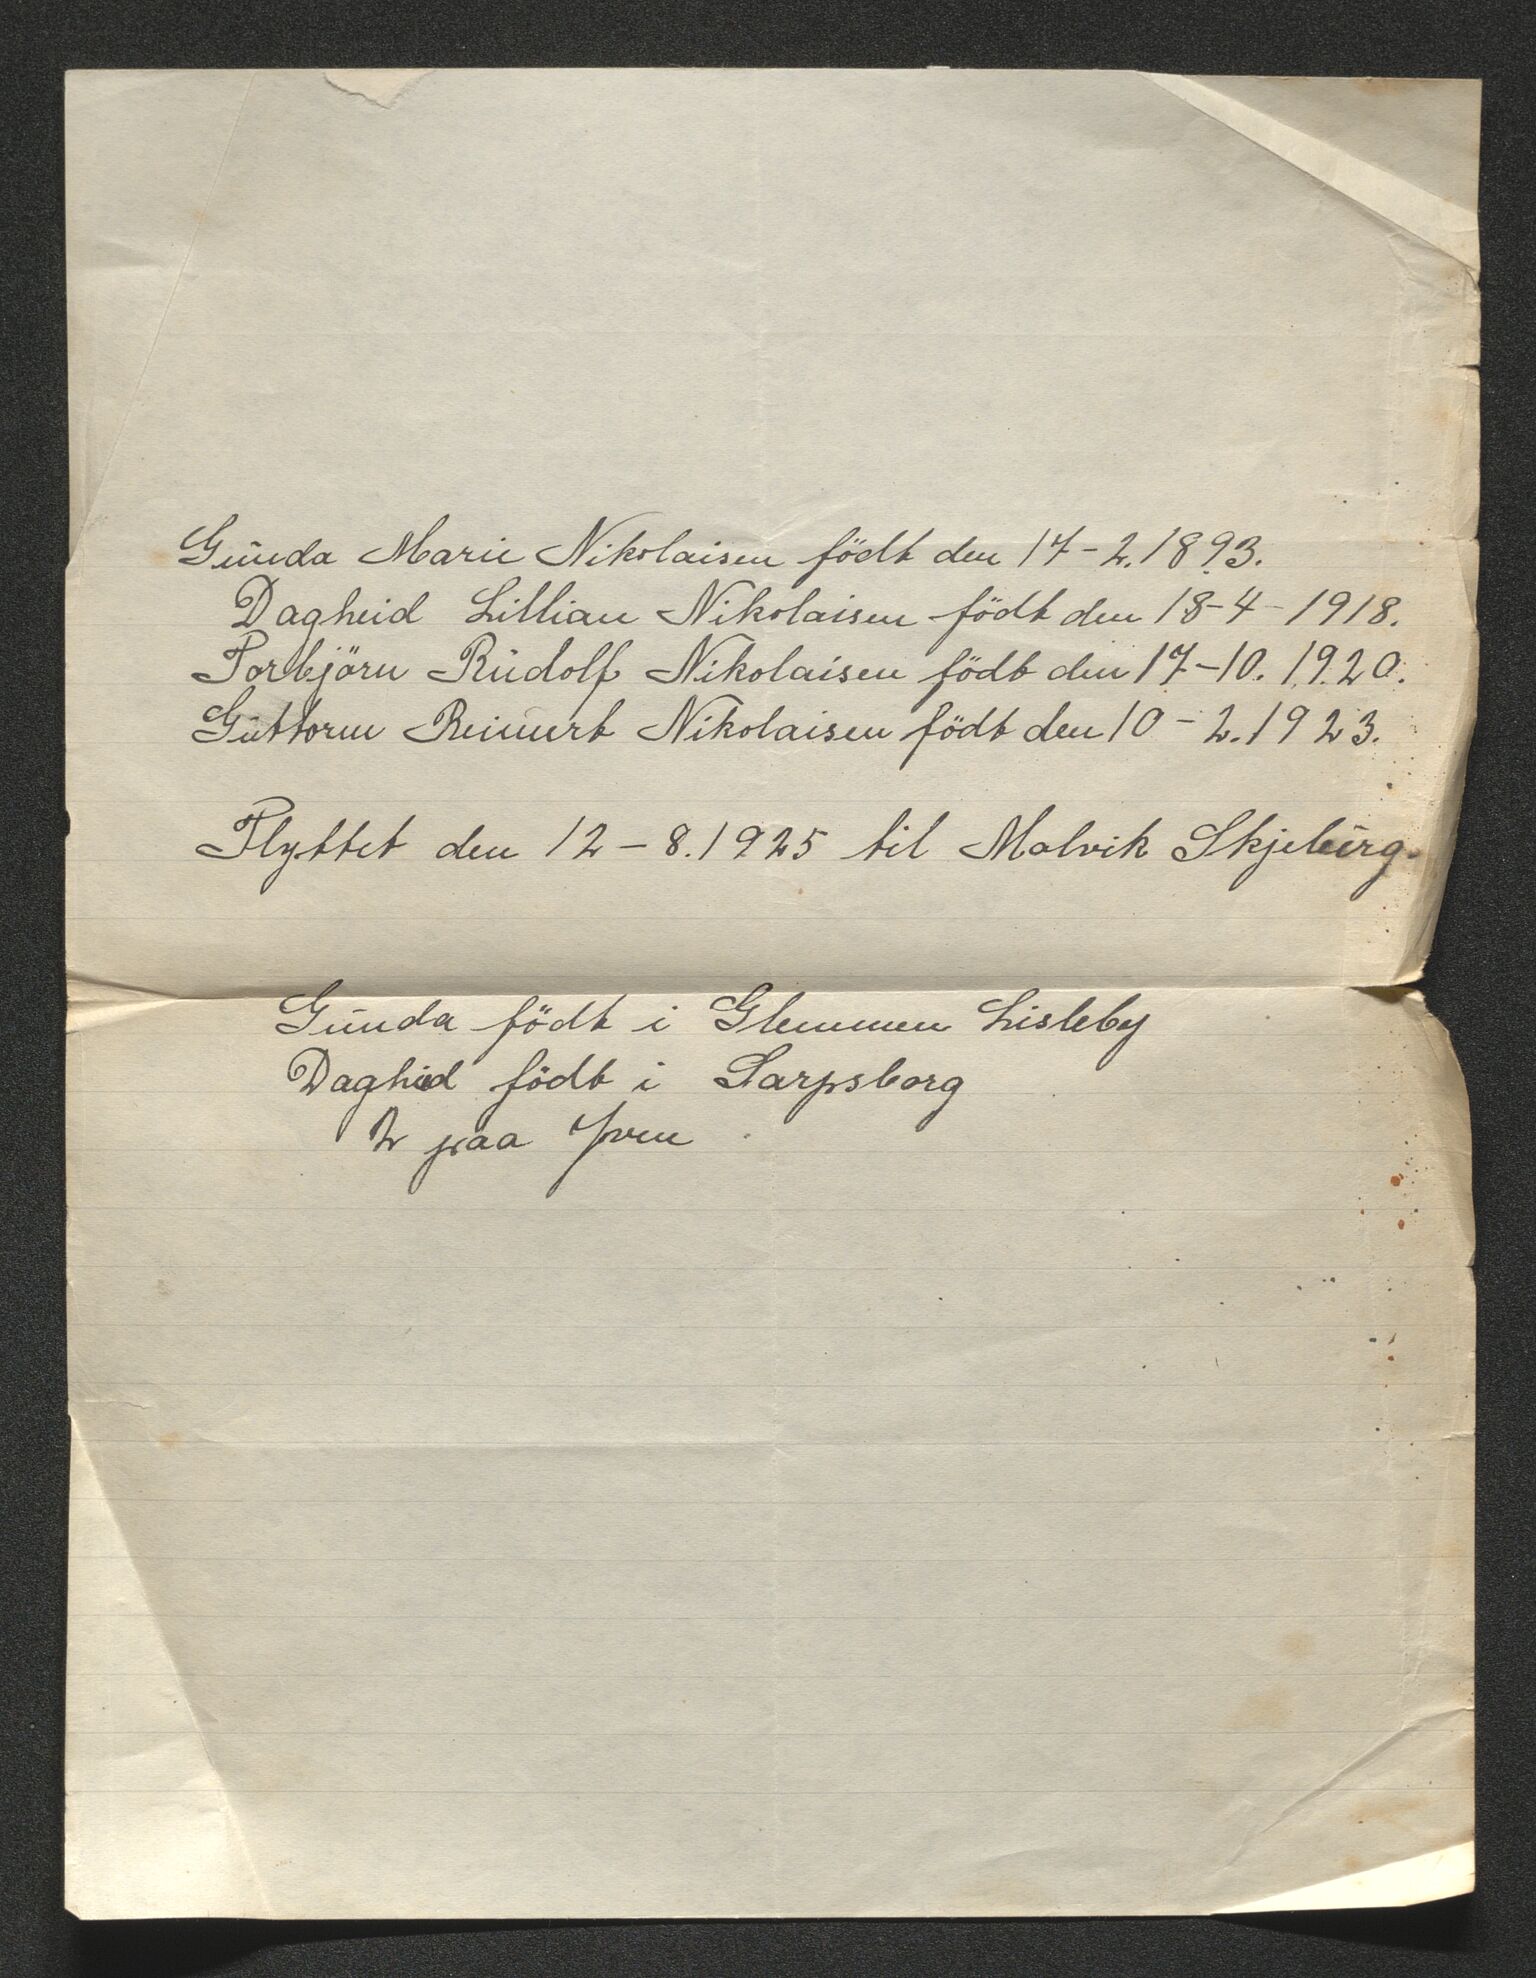 Gunda Marie Nikolaisen födt den 17-2.1893.
Dagheid Lillian Nikolaisen födt den 18-4-1918.
Torbjörn Rudolf Nikolaisen födt den 17-10.1920.
Guttorm Reinert Nikolaisen födt den 10-2.1923.
Flyttet den 12-8.1925 til Molvik Skjeberg.
Gunda födt i Glemmen Lisleby
Daghid födt i Sarpsborg
2 paa Yven